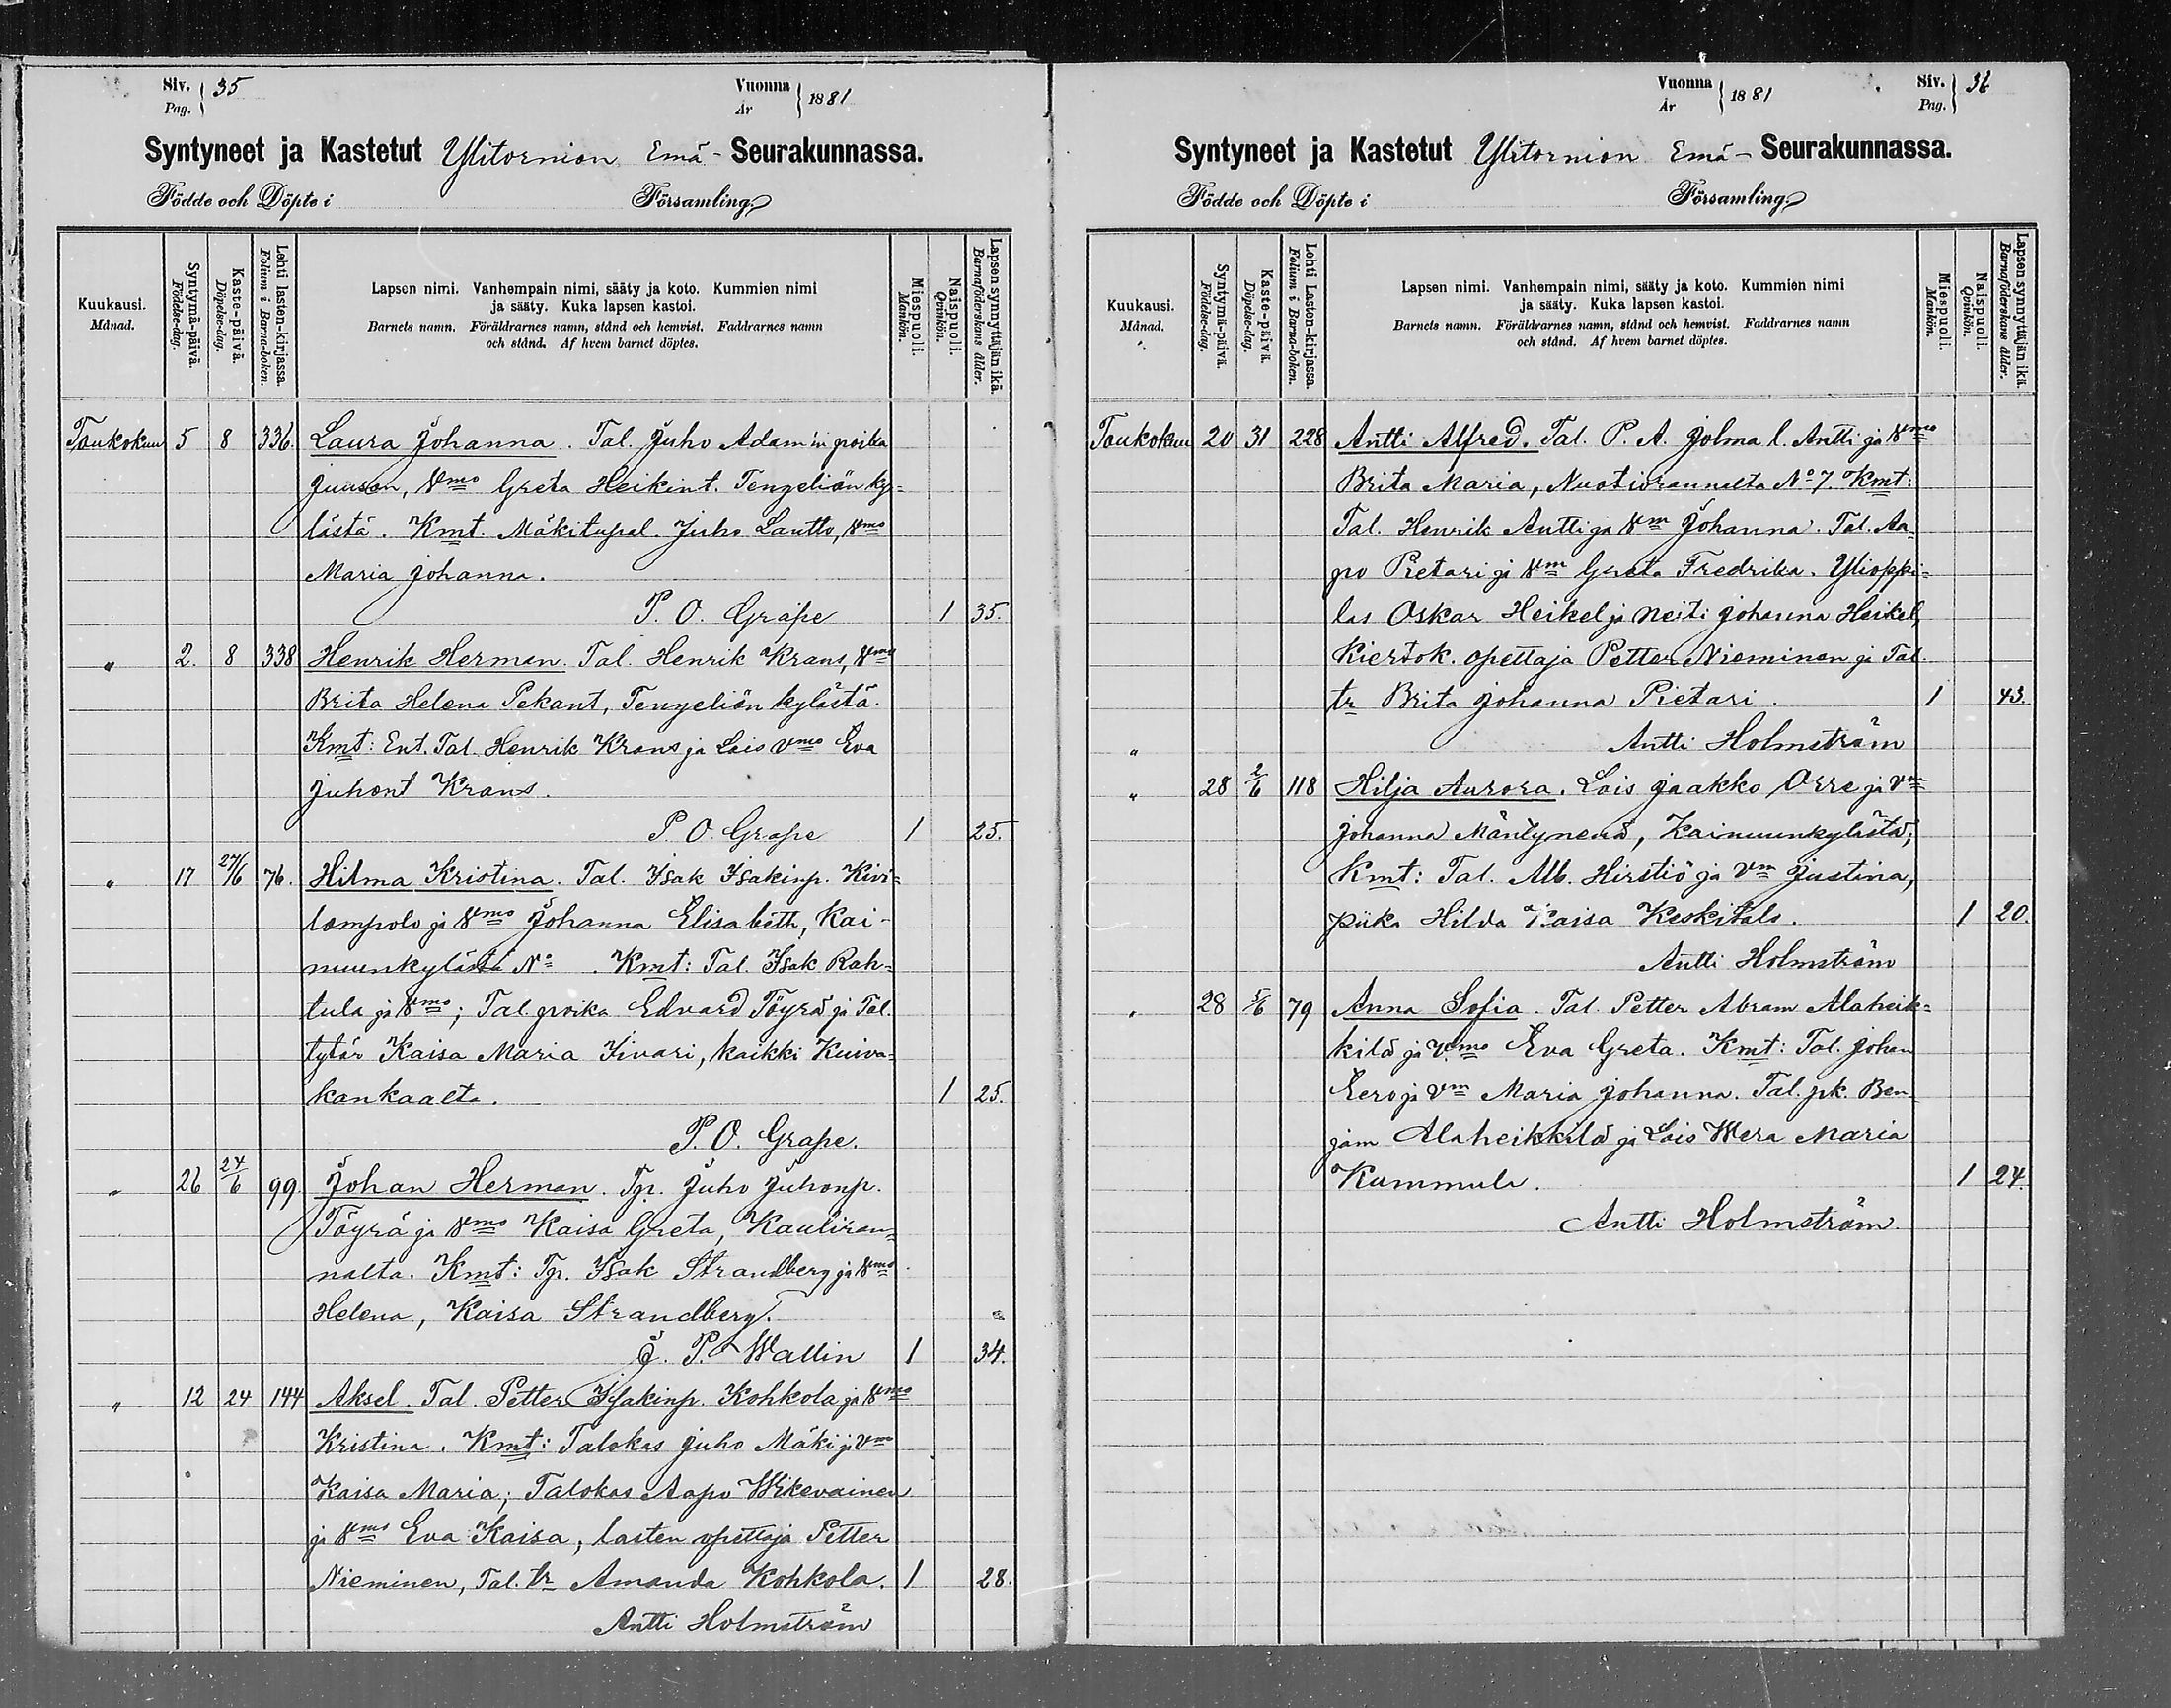 Siv. 35
Pag.
Vuonna 1881
År
Syntyneet ja Kastetut Ylitornion Emä- Seurakunnassa.
Födde och Döpte i Församling
Kuukausi.
Månad.
Syntymä-päivä.
Födelse-dag.
Kaste-päivä.
Döpelse-dag.
Lehti lasten-kirjassa.
Folium i Barna-boken.
Lapsen nimi. Vanhempain nimi, sääty ja koto. Kummien nimi
ja sääty. Kuka lapsen kastoi.
Barnets namn. Föräldrarnes namn, stånd och hemvist. Faddrarnes namn
och stånd. Af hvem barnet döptes.
Miespuoli.
Mankön.
Naispuoli.
Qvinkön.
Lapsen synnyttäjän ikä.
Barnaföderskans ålder.
Toukokuu 5 8 336. Laura Johanna. Tal. Juho Adam'in poika
Juuson, Vmo Greta Heikint. Tengeliön ky-
lästä. Kmt. Mäkitupal. Juho Lautto, Vmo
Maria Johanna.
P. O. Grape 1 35.
" 2. 8 338 Henrik Herman. Tal. Henrik Krans, Vmo
Brita Helena Pekant, Tengeliön kylästä.
Kmt: Ent. Tal. Henrik Krans ja Lois Vmo Eva
Juhont Krans.
P. O. Grape 1 25.
" 17 27/6 76. Hilma Kristina. Tal. Isak Isakinp. Kivi-
lompolo ja Vmo Johanna Elisabeth, Kai-
nuunkylästä No . Kmt: Tal. Isak Rah-
tula ja Vmo; Tal. poika Edvard Töyrä ja Tal.
tytär Kaisa Maria Iivari, kaikki Kuiva-
kankaalta. 1 25.
P. O. Grape.
" 26 24/6 99. Johan Herman. Tp. Juho Juhonp.
Töyrä ja Vmo Kaisa Greta, Kauliran-
nalta. Kmt: Tp. Isak Strandberg ja Vmo
Helena, Kaisa Strandberg.
J. P. Wallin 1 34.
" 12 24 144 Aksel. Tal. Petter Isakinp. Kohkola ja Vmo
Kristina. Kmt: Talokas Juho Mäki ja Vm
Kaisa Maria; Talokas Aapo Wikevainen
ja Vmo Eva Kaisa, lasten opettaja Petter
Nieminen, Tal. tr Amanda Kohkola. 1 28.
Antti Holmström
Vuonna 1881
År
Siv. 36
Pag.
Syntyneet ja Kastetut Ylitornion Emä- Seurakunnassa.
Födde och Döpte i Församling
Kuukausi.
Månad.
Syntymä-päivä.
Födelse-dag.
Kaste-päivä.
Döpelse-dag.
Lehti Lasten-kirjassa.
Folium i Barna-boken.
Lapsen nimi. Vanhempain nimi, sääty ja koto. Kummien nimi
ja sääty. Kuka lapsen kastoi.
Barnets namn. Föräldrarnes namn, stånd och hemvist. Faddrarnes namn
och stånd. Af hvem barnet döptes.
Miespuoli.
Mankön.
Naispuoli.
Qvinkön.
Lapsen synnyttäjän ikä.
Barnaföderskans ålder.
Toukokuu 20 31 228 Antti Alfred. Tal. P. A. Jolma l. Antti ja Vmo
Brita Maria, Nuotiorannalta No 7. Kmt:
Tal. Henrik Antti ja Vm Johanna. Tal. Aa-
po Pietari ja Vm Greta Fredrika. Ylioppi-
las Oskar Heikel ja Neiti Johanna Heikel,
Kiertok. opettaja Petter Nieminen ja Tal.
tr Brita Johanna Pietari. 1 43.
" Antti Holmström
" 28 2/6 118 Hilja Aurora. Lois Jaakko Orre ja Vm
Johanna Mäntynenä, Kainuunkylästä;
Kmt: Tal. Alb. Hirstiö ja Vm Justina,
piika Hilda Kaisa Keskitalo. 1 20.
Antti Holmström
" 28 5/6 79 Anna Sofia. Tal. Petter Abram Alaheik-
kilä ja Vmo Eva Greta. Kmt: Tal. Johan
Eero ja Vm Maria Johanna. Tal. pk. Ben-
jam Alaheikkilä ja Lois Wera Maria
Kummula. 1 24.
Antti Holmström